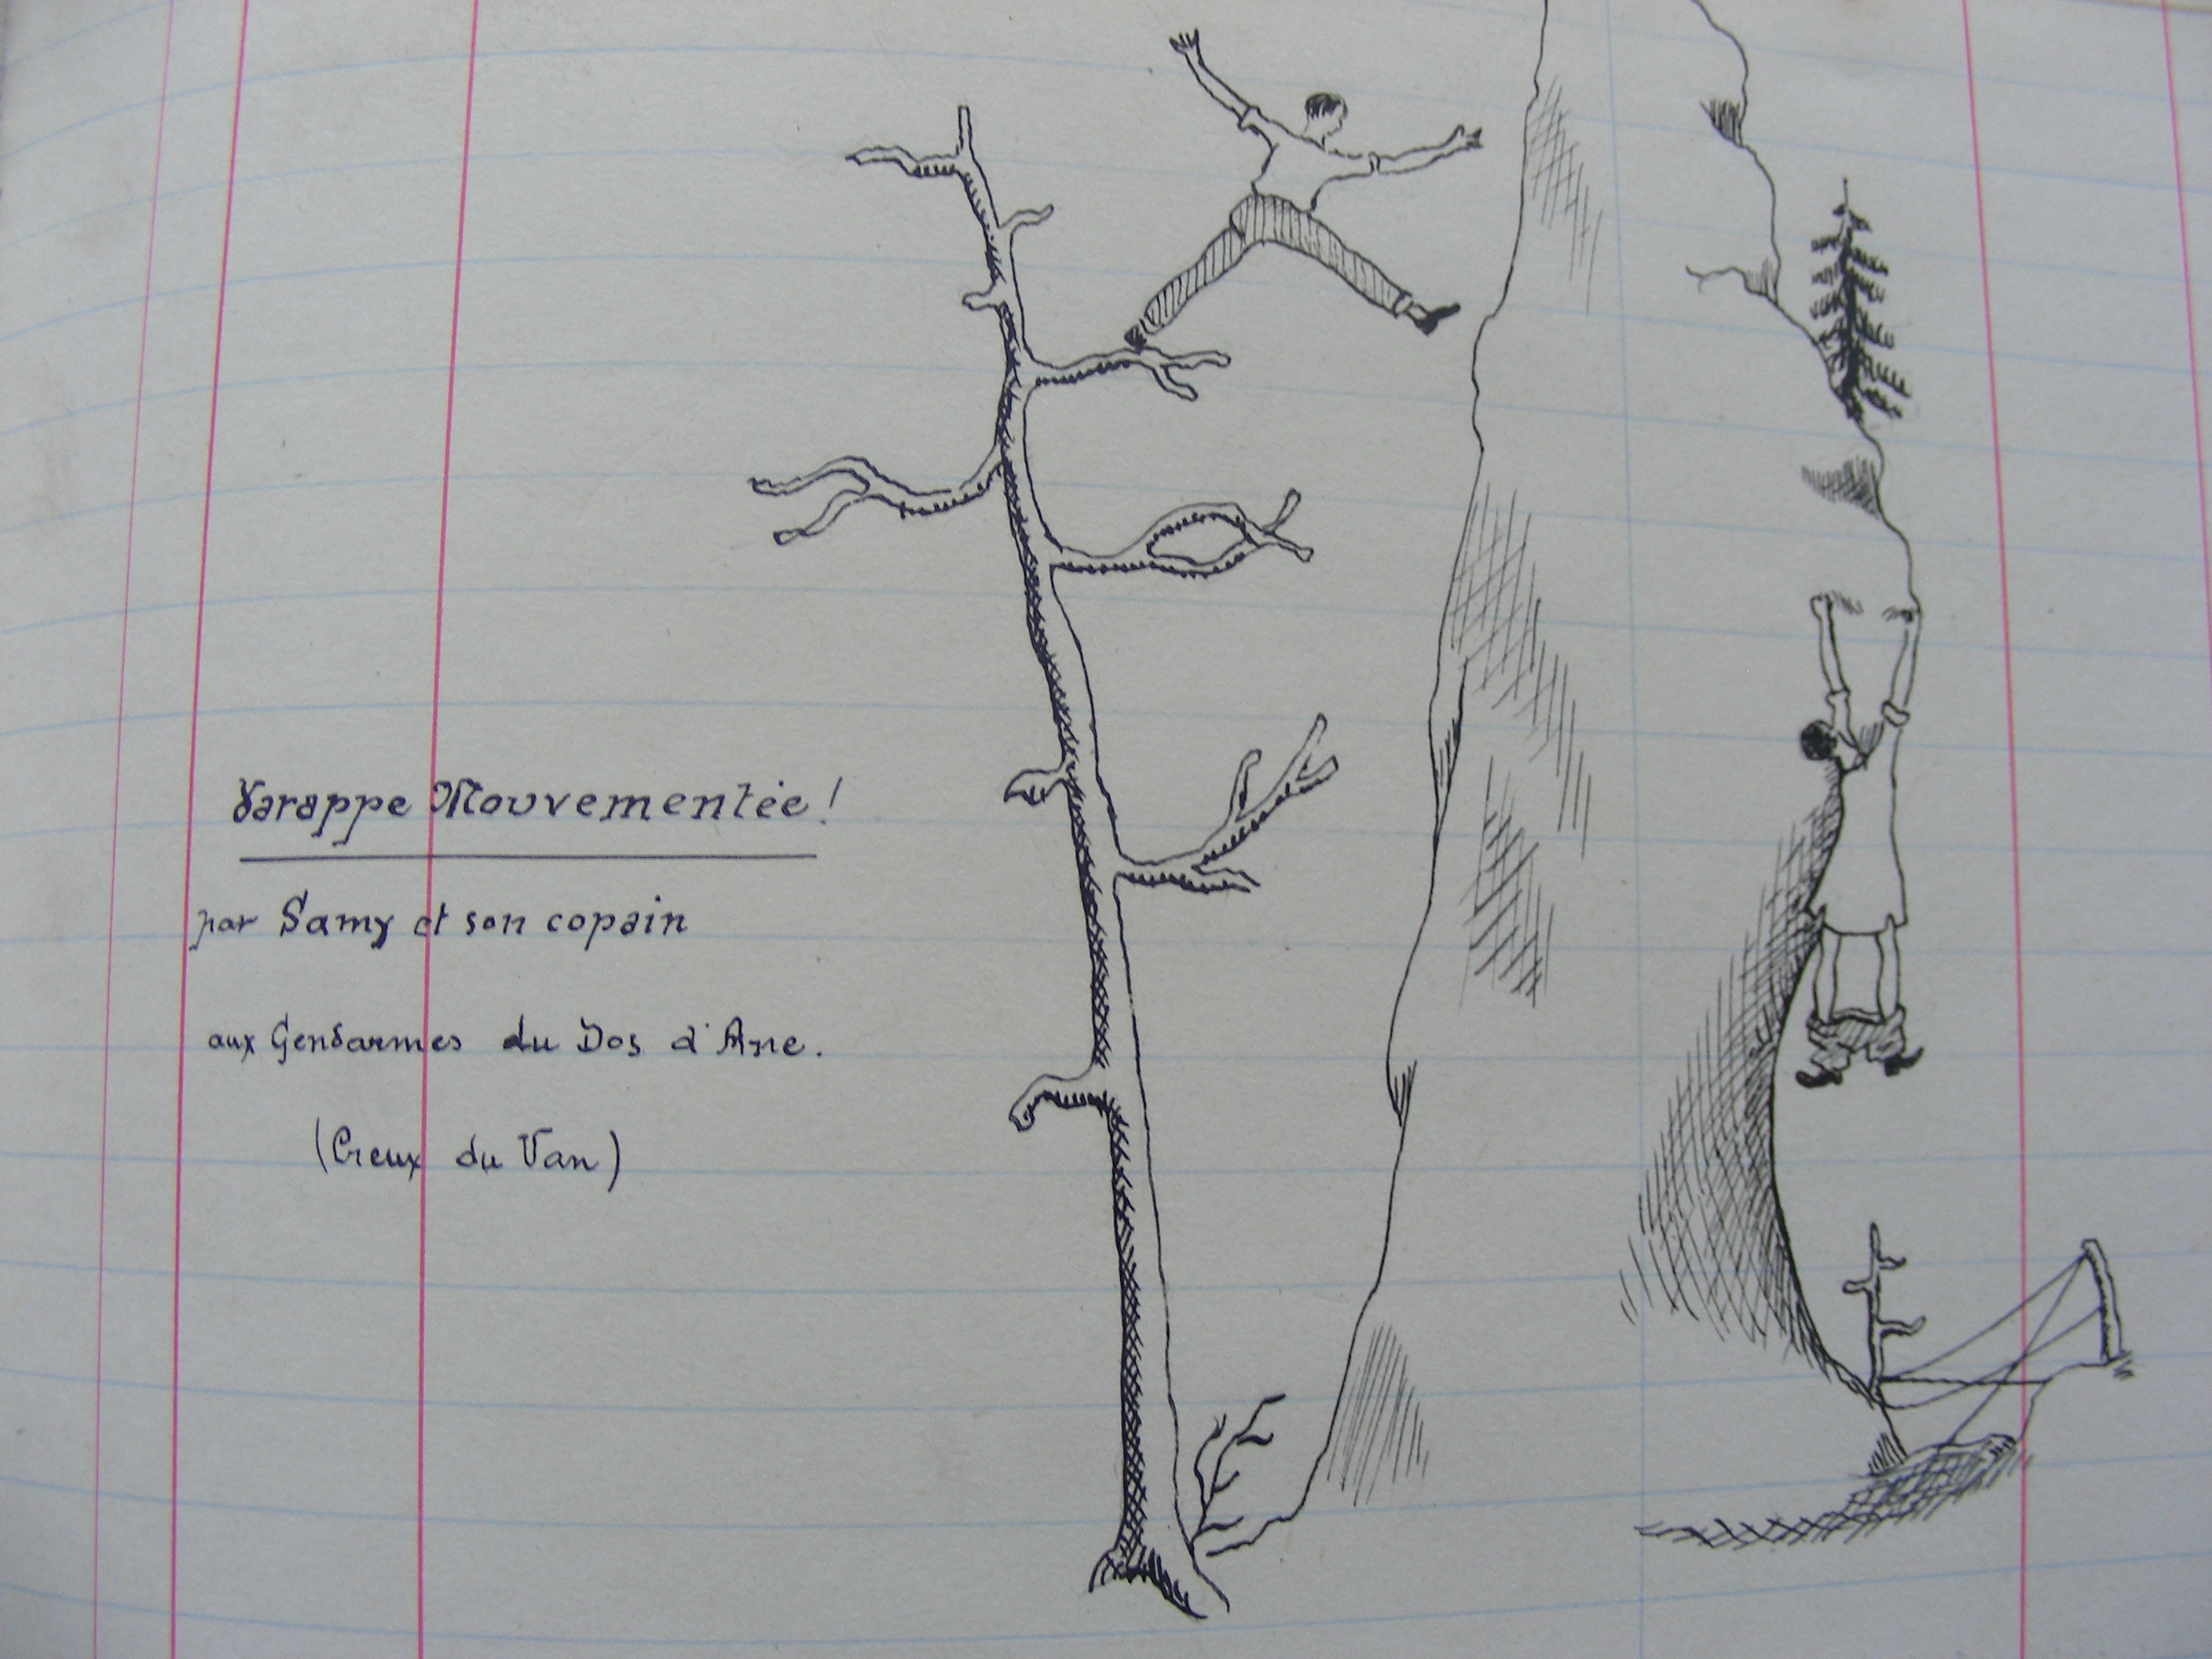 Varappe Mouvementée!
par Samy et son copain
aux Gendarmes du Dos d'Ane.
(Creux du Van)